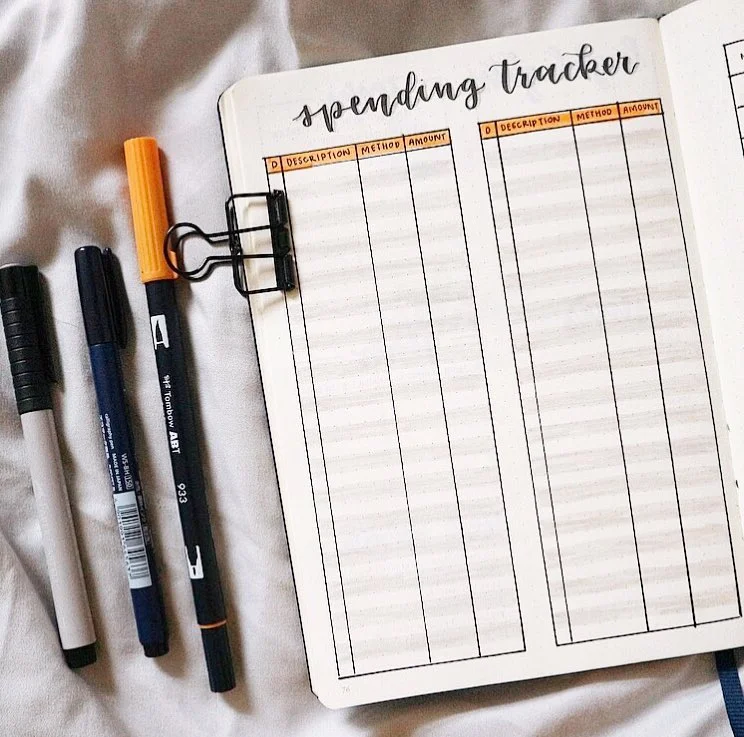 spending tracker
D DESCRIPTION METHOD AMOUNT
D DESCRIPTION METHOD AMOUNT
Tombow ABT
933
MADE IN JAPAN
76